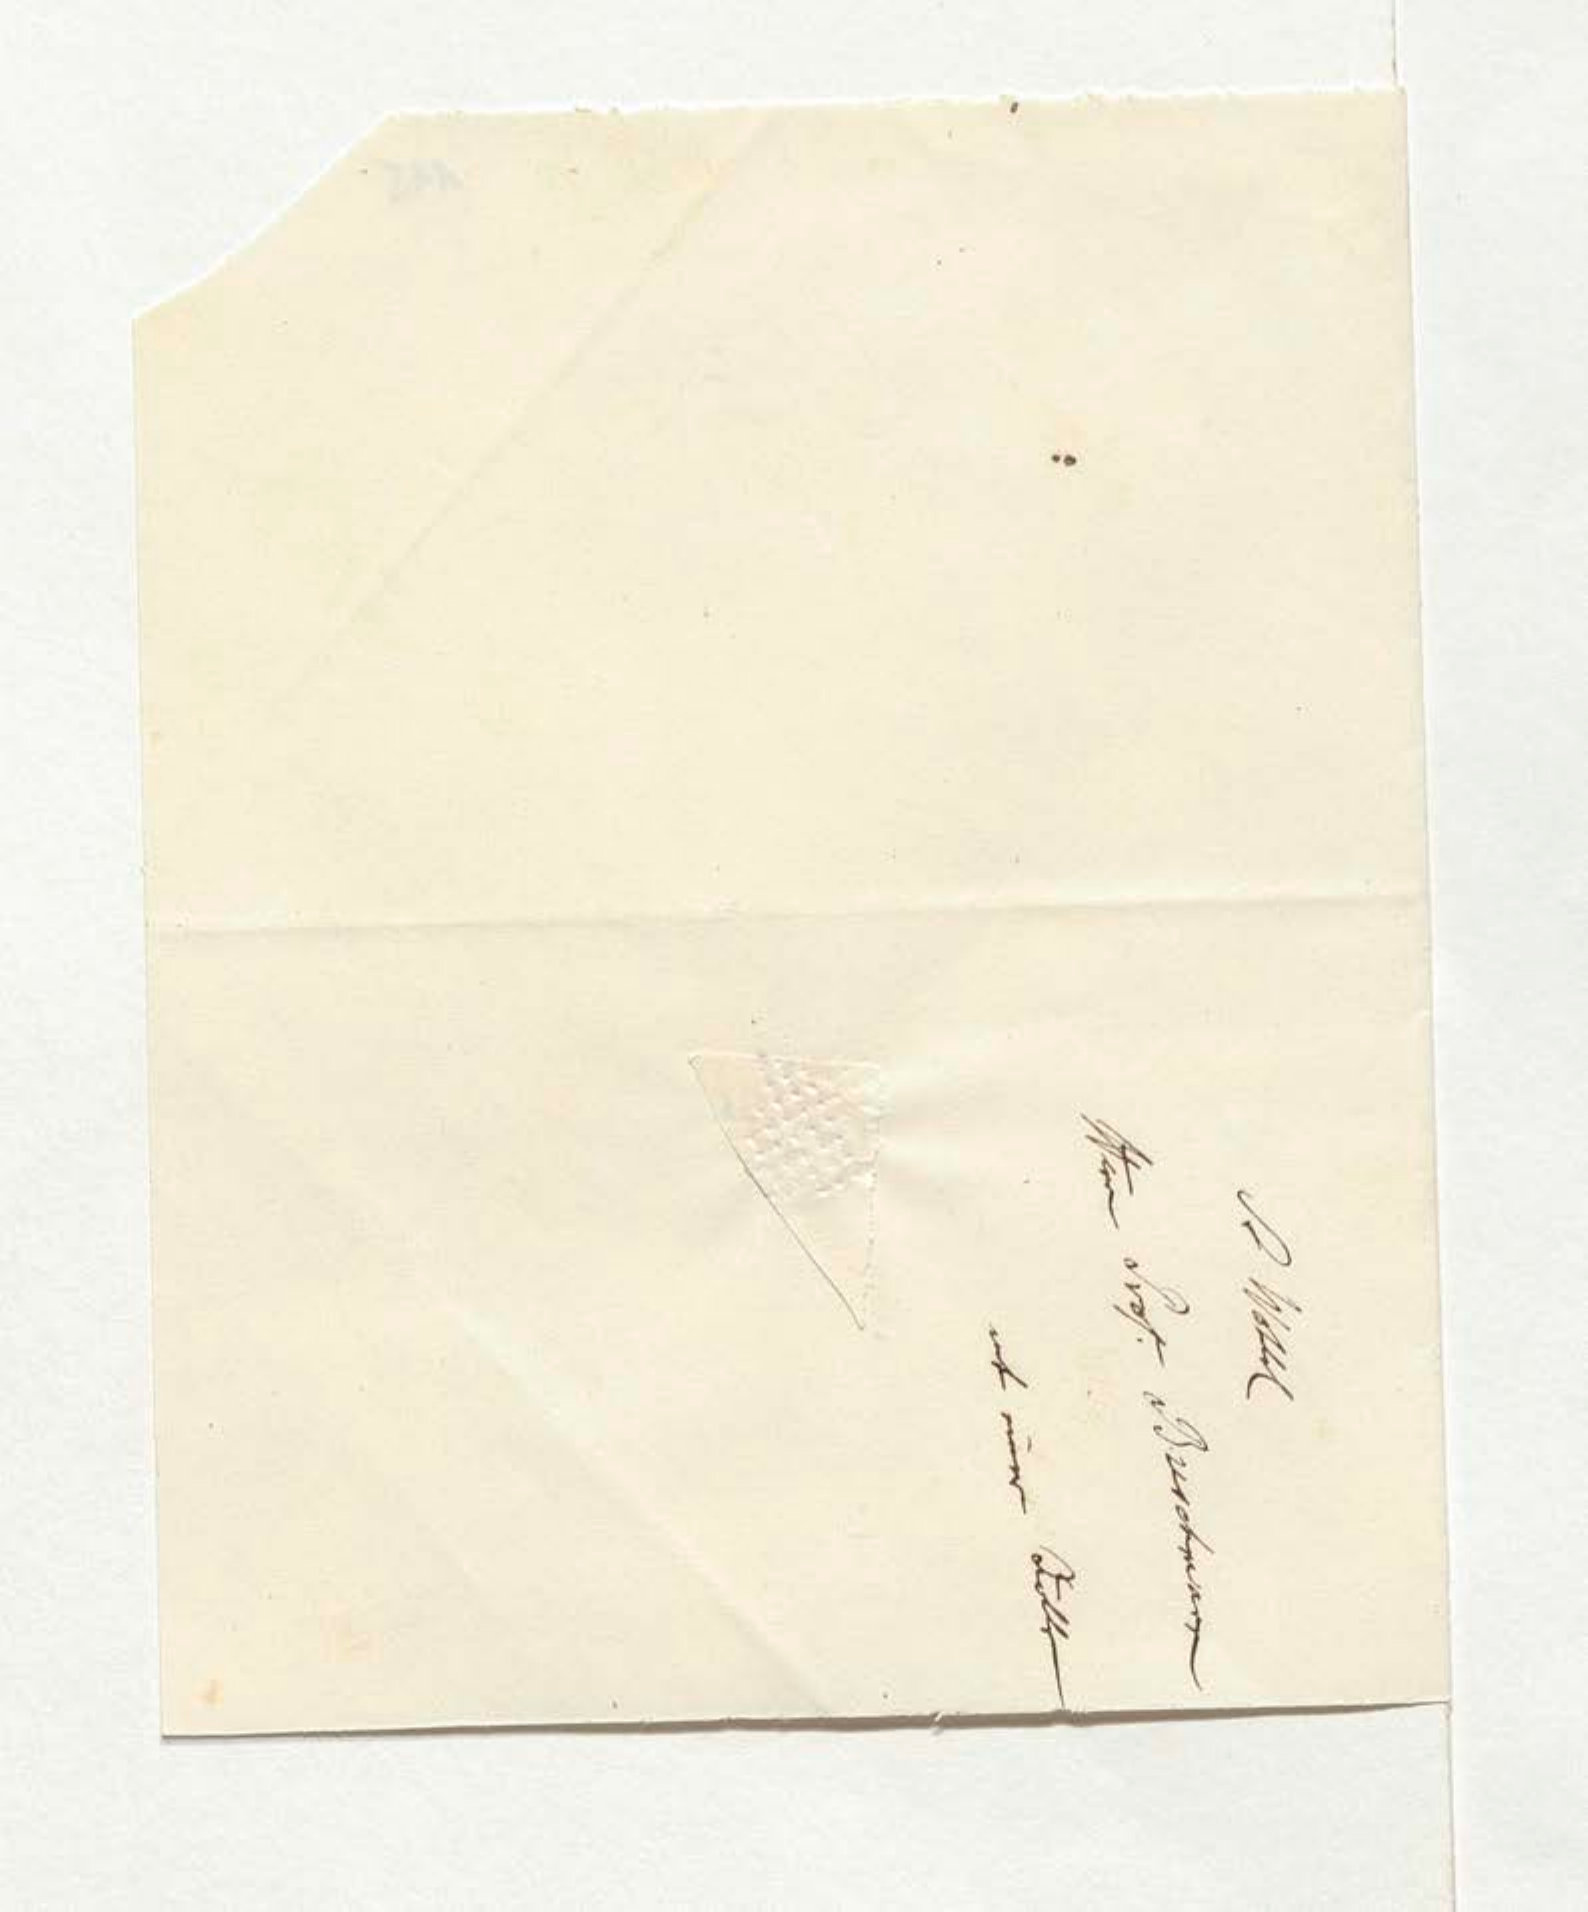 Sr Wohl
Herrn Prof. Buschmann
mit einer Rolle